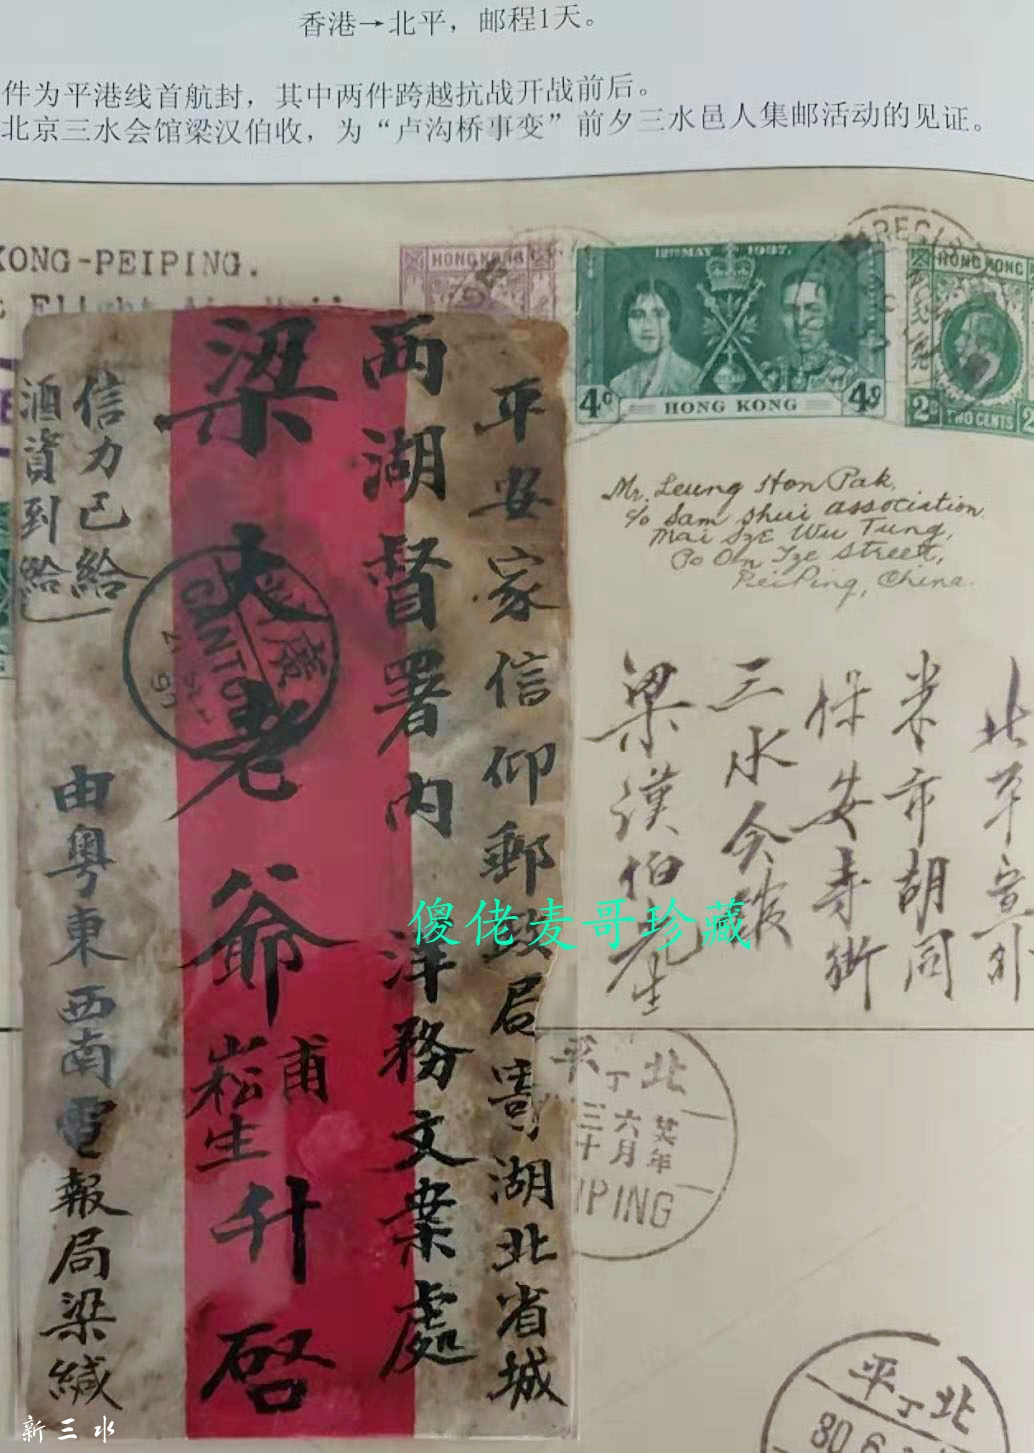 香港→北平，邮程1天。
件为平港线首航封，其中两件跨越抗战开战前后。
北京三水会馆梁汉伯收，为“卢沟桥事变”前夕三水邑人集邮活动的见证。
KONG-PEIPING.
HONG KONG
12TH MAY 1937.
4c HONG KONG 4c
HONG KONG
2c TWO CENTS 2
Mr. Leung Hon Pak,
c/o Sam Shui Association
Mai Sze Wu Tung,
Po On Sze Street,
PeiPing, China.
北平宣外
米市胡同
保安寺街
三水会馆
梁漢伯先生
平安家信仰郵政局寄湖北省城
两湖督署内洋務文案處
梁大老爺甫崧生升啓
信力已給
酒資到給
由粤東西南電報局梁緘
CANTO
廣
北平
丁
廿六年
六月
三十
IPING
北平
丁
30.6
傻佬麦哥珍藏
新三水